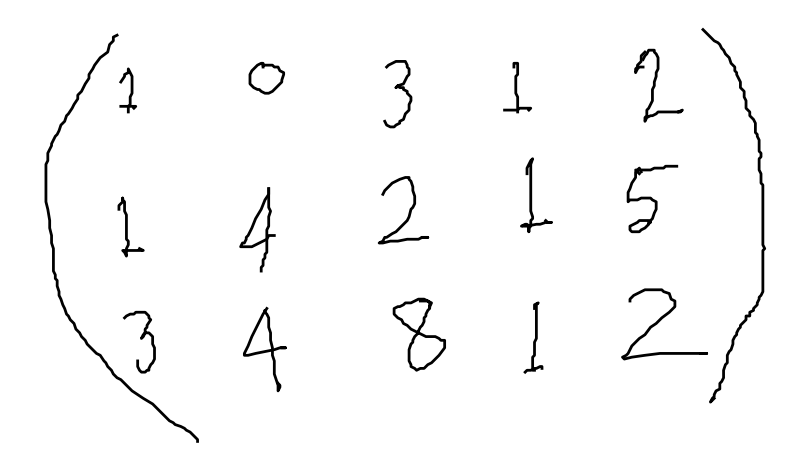 1 0 3 1 2
1 4 2 1 5
3 4 8 1 2